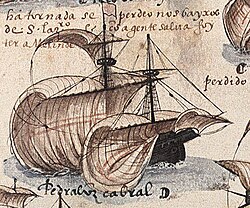 ha tornada se perdeo nos bayxos
de S. lazro agente salua foy
ter a Melinde
perdido
Pedraluz cabral D